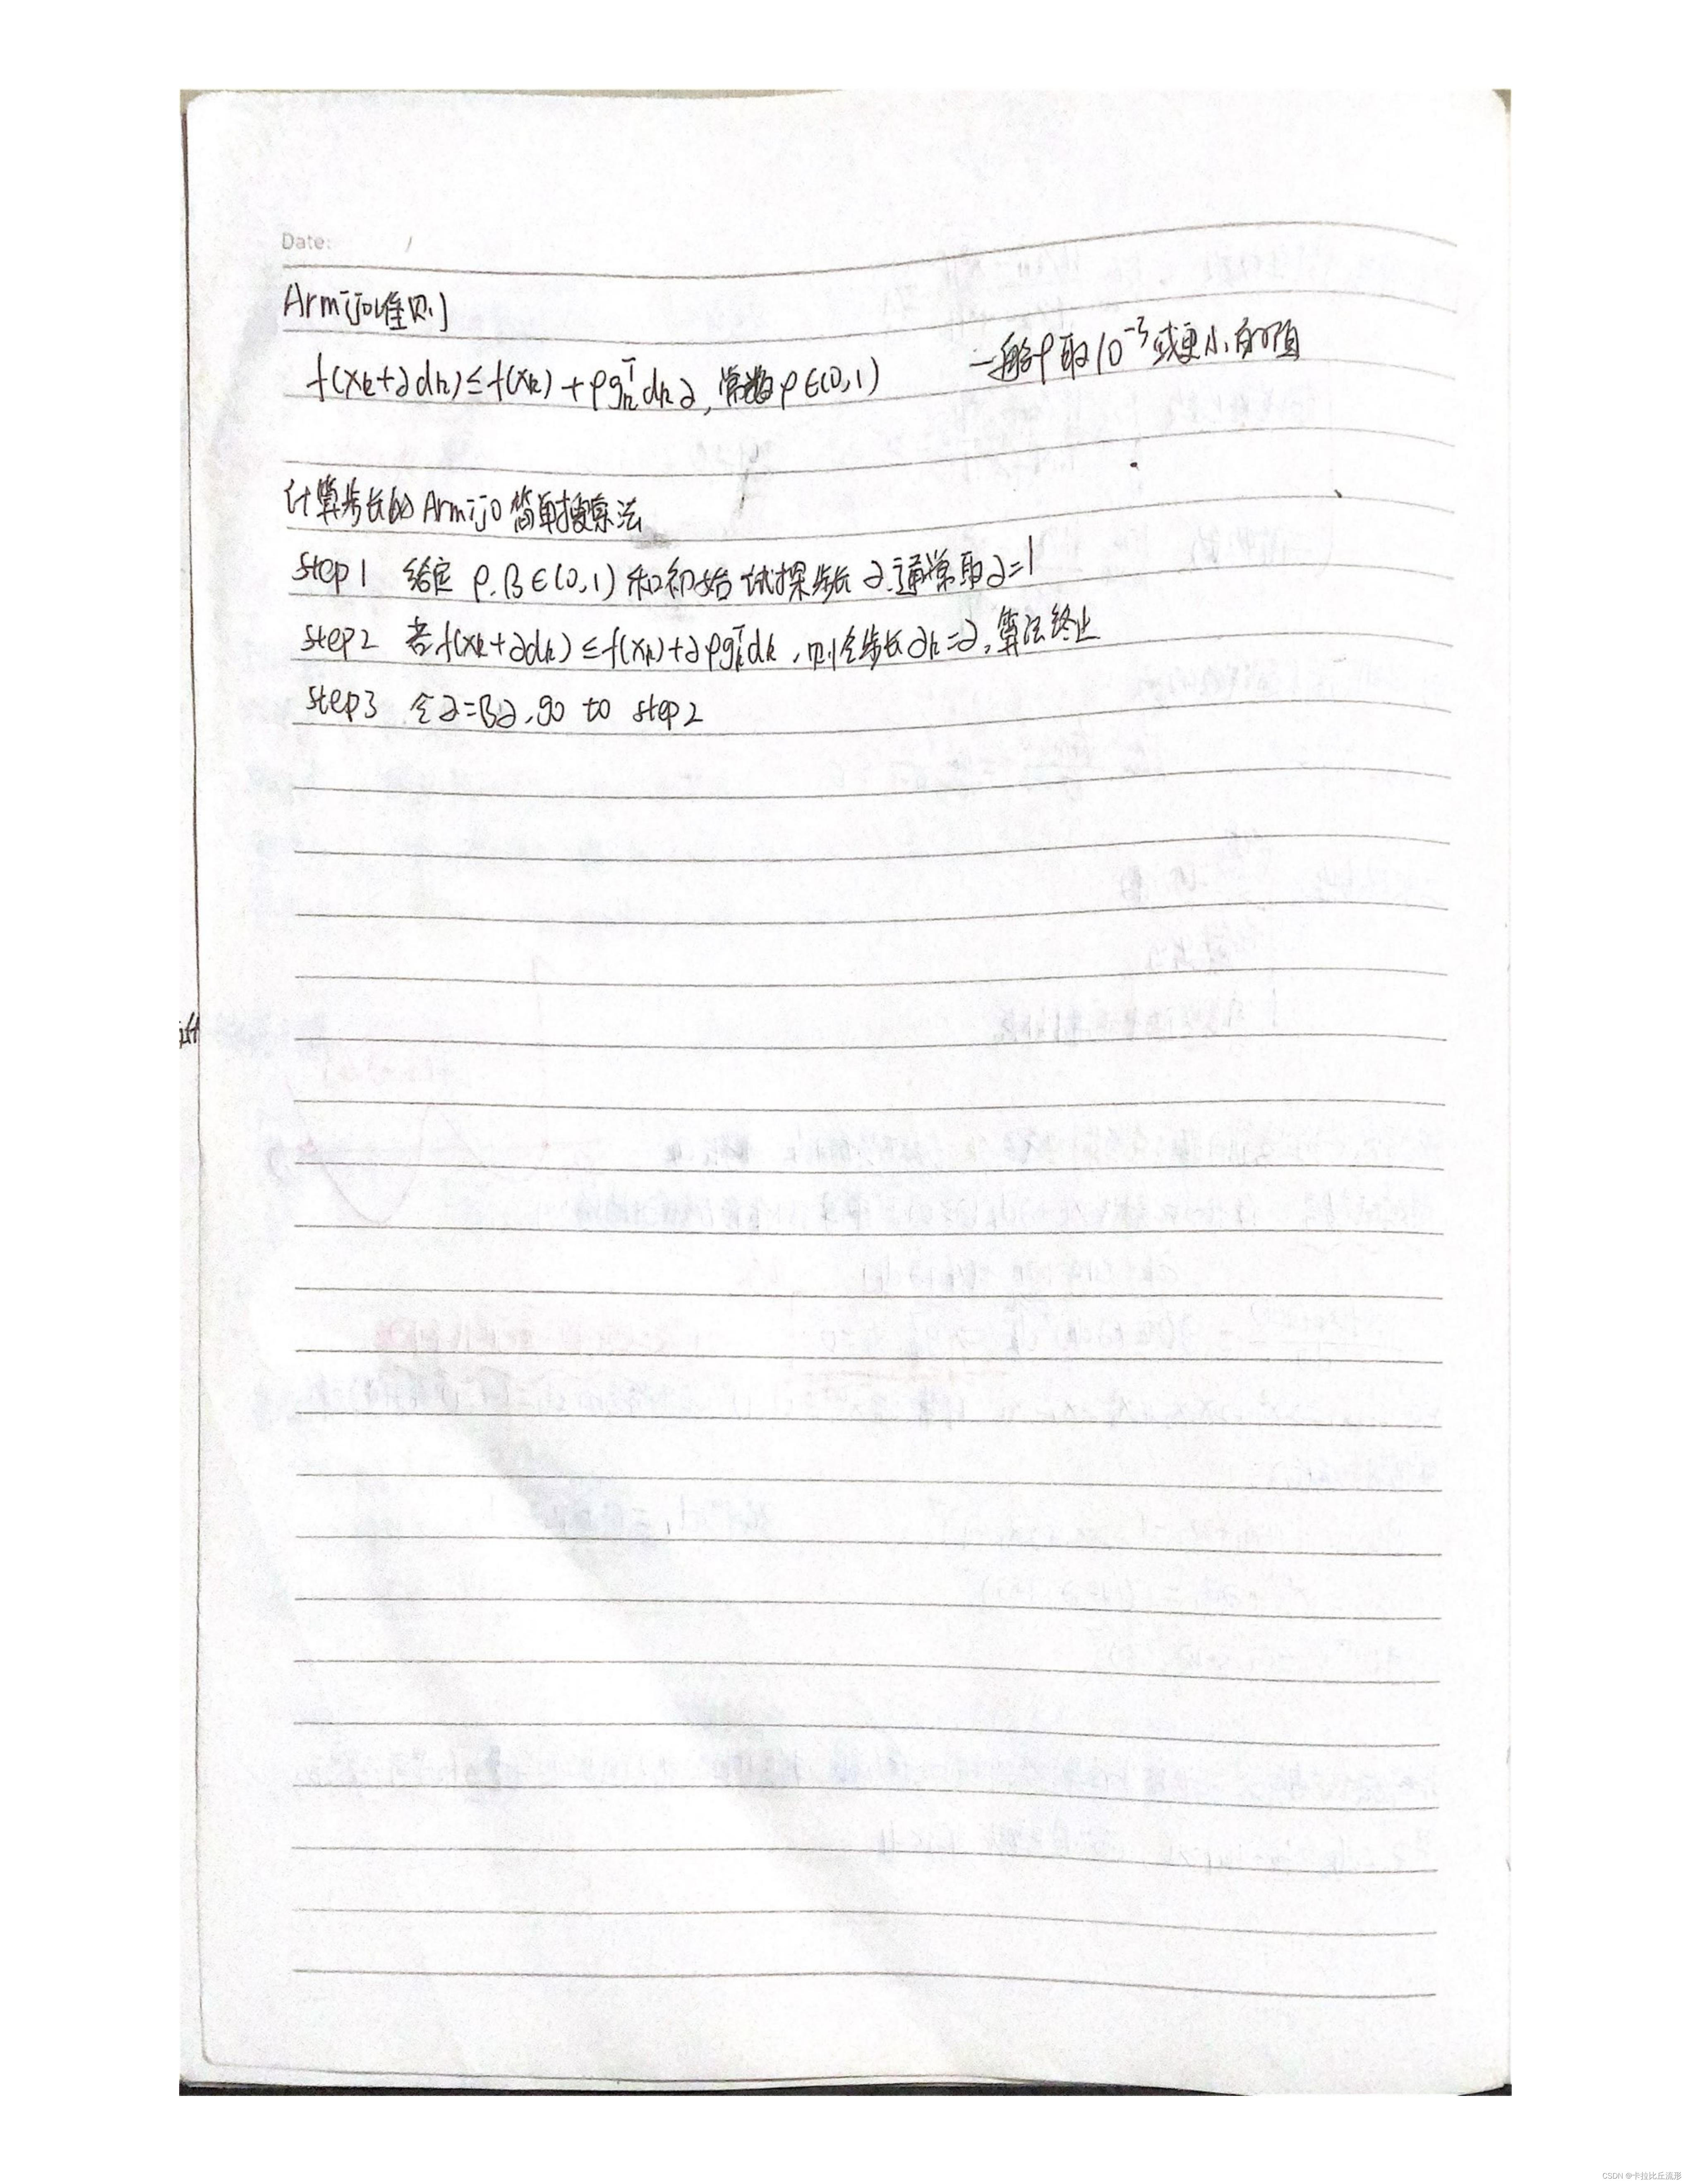 Date: /
Armijo准则
f(xk+∂dk)≤f(xk)+ρgkᵀdk∂,常数ρ∈(0,1) 一般ρ取10⁻³或更小的值
计算步长的Armijo简单搜索法
step1 给定 ρ,β∈(0,1)和初始试探步长∂,通常取∂=1
step2 若f(xk+∂dk)≤f(xk)+∂ρgkᵀdk,则令步长∂k=∂,算法终止
step3 令∂=β∂,go to step2
CSDN @卡拉比丘流形